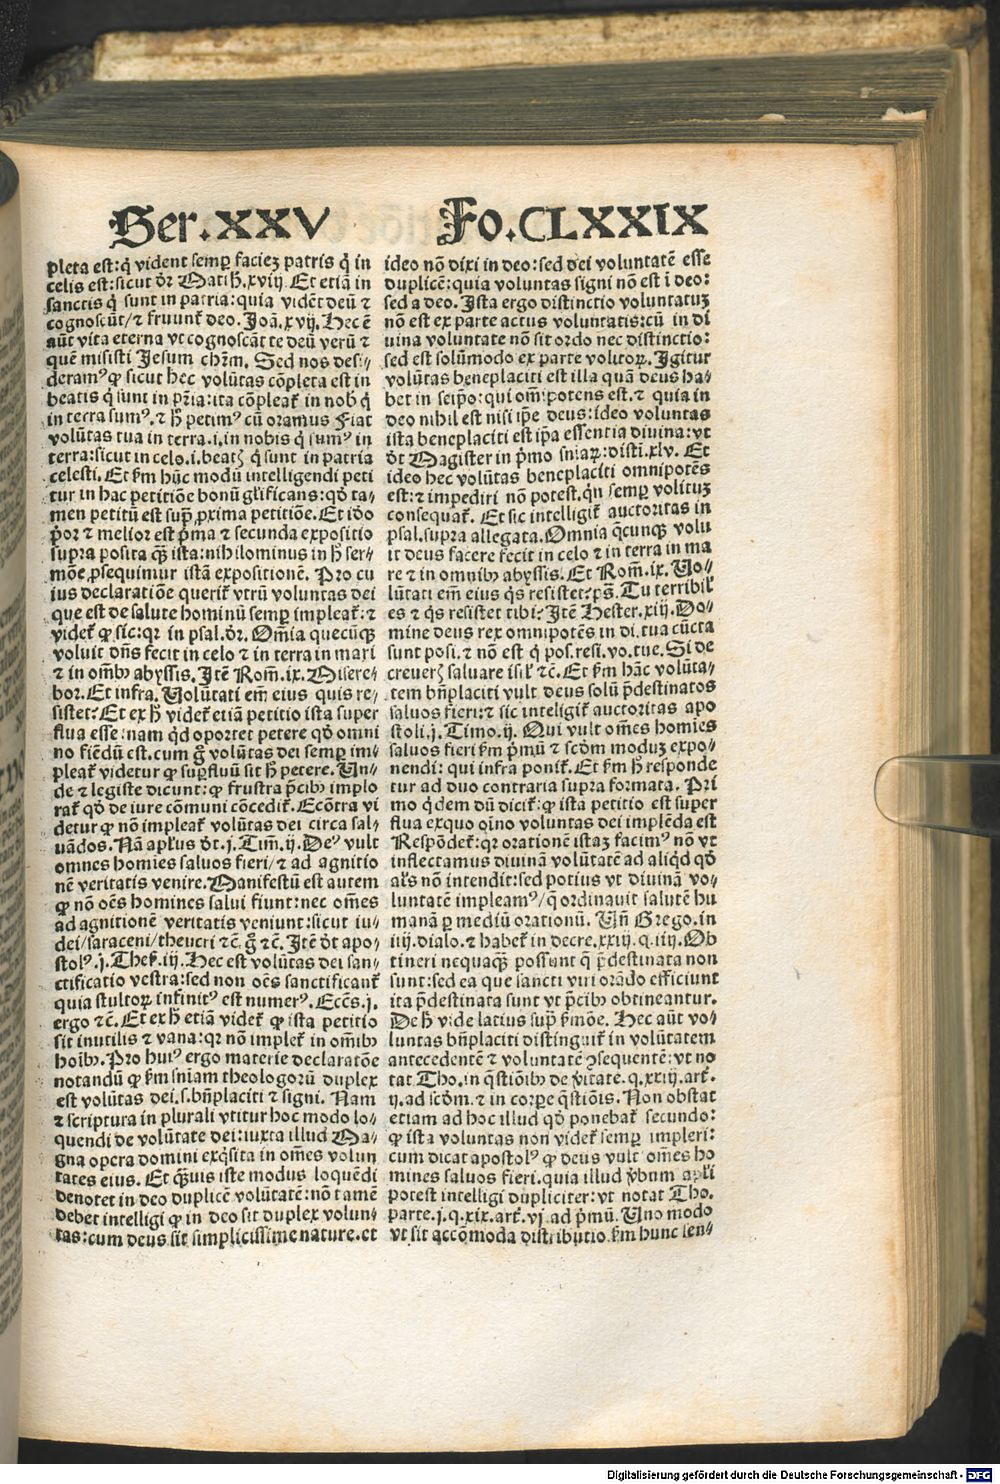 Ser.XXV
Fo.CLXXIX
pleta est:q̇ vident semꝑ faciez patris q̇ in
celis est:sicut d̄r Math.xviij. Et etiā in
sanctis q̇ sunt in patria:quia vidēt deū ⁊
cognoscūt/⁊ fruunt̄ deo. Joā.xvij. Hec ē
aūt vita eterna vt cognoscāt te deū verū ⁊
quē misisti Jesum chr̄m. Sed nos desi⸗
deramꝰ ꝙ sicut hec volūtas cōpleta est in
beatis q̇ sunt in pr̄ia:ita cōpleat̄ in nob̄ q̇
in terra sumꝰ. ⁊ h̄ petimꝰ cū oramus Fiat
volūtas tua in terra.i.in nobis q̇ sumꝰ in
terra:sicut in celo.i.beatꝭ q̇ sunt in patria
celesti. Et ẜm hūc modū intelligendi peti
tur in hac petitiōe bonū glificans:qd̄ ta⸗
men petitū est sup̄ ꝓxima petitiōe. Et iō
p̄or ⁊ melior est p̄ma ⁊ secunda expositio
supra posita q̄ꝫ ista:nihilominus in h̄ ser⸗
mōe ꝓsequimur istā expositionē. Pro cu
ius declaratiōe querit̄ vtrū voluntas dei
que est de salute hominū semper impleat̄:⁊
videt̄ ꝙ sic:qꝛ in psal.d̄r. Om̄ia quecūqꝫ
voluit dn̄s fecit in celo ⁊ in terra in mari
⁊ in om̄ibꝰ abyssis. Itē Rom̄.ix. Misere⸗
bor. Et infra. Volūtati em̄ eius quis re⸗
sistet? Et ex h̄ videt̄ etiā petitio ista super
flua esse:nam qd̄ oportet petere qd̄ omni
no fiēdū est.cum g̊ volūtas dei semper im⸗
pleat̄ videtur ꝙ suꝑfluū sit h̄ petere. Un⸗
de ⁊ legiste dicunt:ꝙ frustra p̄cibꝰ implo
rat̄ qd̄ de iure cōmuni cōcedit̄. Ecōtra vi
detur ꝙ nō impleat̄ volūtas dei circa sal⸗
uādos. Nā apl̄us d̄t.j.Tim̄.ij. Deꝰ vult
omnes homīes saluos fieri/⁊ ad agnitio
nē veritatis venire. Manifestū est autem
ꝙ nō oēs homines salui fiunt:nec om̄es
ad agnitionē veritatis veniunt:sicut iu⸗
dei/saraceni/theucri ⁊c̄. g̊ ⁊c̄. Itē d̄t apo⸗
stolꝰ.j.Thes̄.iij. Hec est volūtas dei san⸗
ctificatio vestra:sed non oēs sanctificant̄
quia stultoꝝ infinitꝰ est numerꝰ. Eccēs.j.
ergo ⁊c̄. Et ex h̄ etiā videt̄ ꝙ ista petitio
sit inutilis ⁊ vana:qꝛ nō implet̄ in om̄ibꝰ
hoībꝰ. Pro huiꝰ ergo materie declaratōe
notandū ꝙ ẜm sn̄iam theologorū duplex
est volūtas dei.s.bn̄placiti ⁊ signi. Nam
⁊ scriptura in plurali vtitur hoc modo lo⸗
quendi de volūtate dei:iuxta illud Ma⸗
gna opera domini exq̇sita in om̄es volun
tates eius. Et q̄ꝫuis iste modus loquēdi
denotet in deo duplicē volūtatē:nō tamē
debet intelligi ꝙ in deo sit duplex volun⸗
tas:cum deus sit simplicissime nature.et
ideo nō dixi in deo:sed dei voluntatē esse
duplicē:quia voluntas signi nō est ī deo:
sed a deo. Ista ergo distinctio voluntatuꝫ
nō est ex parte actus voluntatis:cū in di
uina voluntate nō sit ordo nec distinctio:
sed est solūmodo ex parte volitoꝝ. Igitur
volūtas beneplaciti est illa quā deus ha⸗
bet in seip̄o:qui om̄ipotens est.⁊ quia in
deo nihil est nisi ip̄e deus:ideo voluntas
ista beneplaciti est ip̄a essentia diuina:vt
d̄t Magister in p̄mo sn̄iaꝝ:disti.xlv. Et
ideo hec volūtas beneplaciti omnipotēs
est:⁊ impediri nō potest.qn̄ semꝑ volituꝫ
consequat̄. Et sic intelligit̄ auctoritas in
psal.supra allegata. Omnia q̄cunqꝫ volu
it deus facere fecit in celo ⁊ in terra in ma
re ⁊ in omnibꝰ abyssis. Et Rom̄.ix. Uo⸗
lūtati em̄ eius q̇s resistet? p̄s. Tu terribil̄
es ⁊ q̇s resistet tibi? Itē Hester.xiij. Do⸗
mine deus rex omnipotēs in di.tua cūcta
sunt posi.⁊ nō est q̇ pos.resi.vo.tue. Si de
creuerꝭ saluare isrl̄ ⁊c̄. Et ẜm hāc volūta⸗
tem bn̄placiti vult deus solū p̄destinatos
saluos fieri:⁊ sic inteligit̄ auctoritas apo
stoli.j.Timo.ij. Qui vult om̄es homīes
saluos fieri ẜm p̄mū ⁊ scd̄m moduꝫ expo⸗
nendi:qui infra ponit̄. Et ẜm h̄ responde
tur ad duo contraria supra formata. Pri
mo q̇dem dū dicit̄:ꝙ ista petitio est super
flua exquo oīno voluntas dei implēda est
Respōdet̄:qꝛ orationē istaꝫ facimꝰ nō vt
inflectamus diuinā volūtatē ad aliq̇d qd̄
als̄ nō intendit:sed potius vt diuinā vo⸗
luntatē impleamꝰ/q̄ ordinauit salutē hu
manā ꝑ mediū orationū. Un̄ Grego.in
iiij.dialo.⁊ habet̄ in decre.xxiij.q.iiij. Ob
tineri nequaq̄ꝫ possunt q̄ p̄destinata non
sunt:sed ea que sancti viri orādo efficiunt
ita p̄destinata sunt vt p̄cibꝰ obtineantur.
De h̄ vide latius sup̄ ẜmōe. Hec aūt vo⸗
luntas bn̄placiti distinguit̄ in volūtatem
antecedentē ⁊ voluntatē ꝯsequentē:vt no
tat Tho.in q̄stiōibꝰ de v̄itate.q.xxiij.art̄.
ij.ad scd̄m.⁊ in corꝑe q̄stiōis. Non obstat
etiam ad hoc illud qd̄ ponebat̄ secundo:
ꝙ ista voluntas non videt̄ semꝑ impleri:
cum dicat apostolꝰ ꝙ deus vult om̄es ho
mines saluos fieri.quia illud v̄bum apl̄i
potest intelligi dupliciter:vt notat Tho.
parte.j.q.xix.art̄.vj.ad p̄mū. Uno modo
vt sit accōmoda distributio ẜm hunc sen⸗
Digitalisierung gefördert durch die Deutsche Forschungsgemeinschaft - DFG